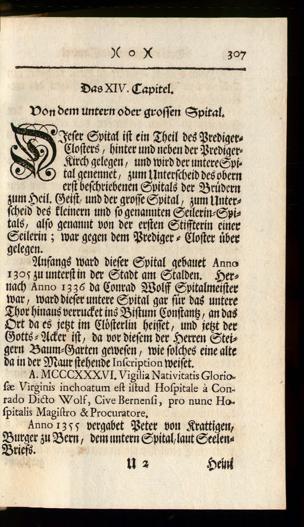 )( o )( 307
Das XIV. Capitel.
Von dem untern oder grossen Spital.
Dieser Spital ist ein Theil des Prediger-
Closters, hinter und neben der Prediger-
Kirch gelegen, und wird der untere Spi-
tal genennet, zum Unterscheid des obern
erst beschriebenen Spitals der Brüdern
zum Heil. Geist, und der grosse Spital, zum Unter-
scheid des kleinern und so genannten Seilerin-Spi-
tals, also genannt von der ersten Stiffterin einer
Seilerin; war gegen dem Prediger-Closter über
gelegen.
Anfangs ward dieser Spital gebauet Anno
1305 zu unterst in der Stadt am Stalden. Her-
nach Anno 1336 da Conrad Wolff Spitalmeister
war, ward dieser untere Spital gar für das untere
Thor hinaus verrucket ins Bistum Costantz, an das
Ort da es jetzt im Clösterlin heisset, und jetzt der
Gotts-Acker ist, da vor diesem der Herren Stei-
gern Baum-Garten gewesen, wie solches eine alte
da in der Maur stehende Inscription weiset.
A. MCCCXXXVI, Vigilia Nativitatis Glorio-
sæ Virginis inchoatum est istud Hospitale à Con-
rado Dicto Wolf, Cive Bernensi, pro nunc Ho-
spitalis Magistro & Procuratore.
Anno 1355 vergabet Peter von Krattigen,
Burger zu Bern, dem untern Spital, laut Seelen-
Brieffs.
U 2 Heini